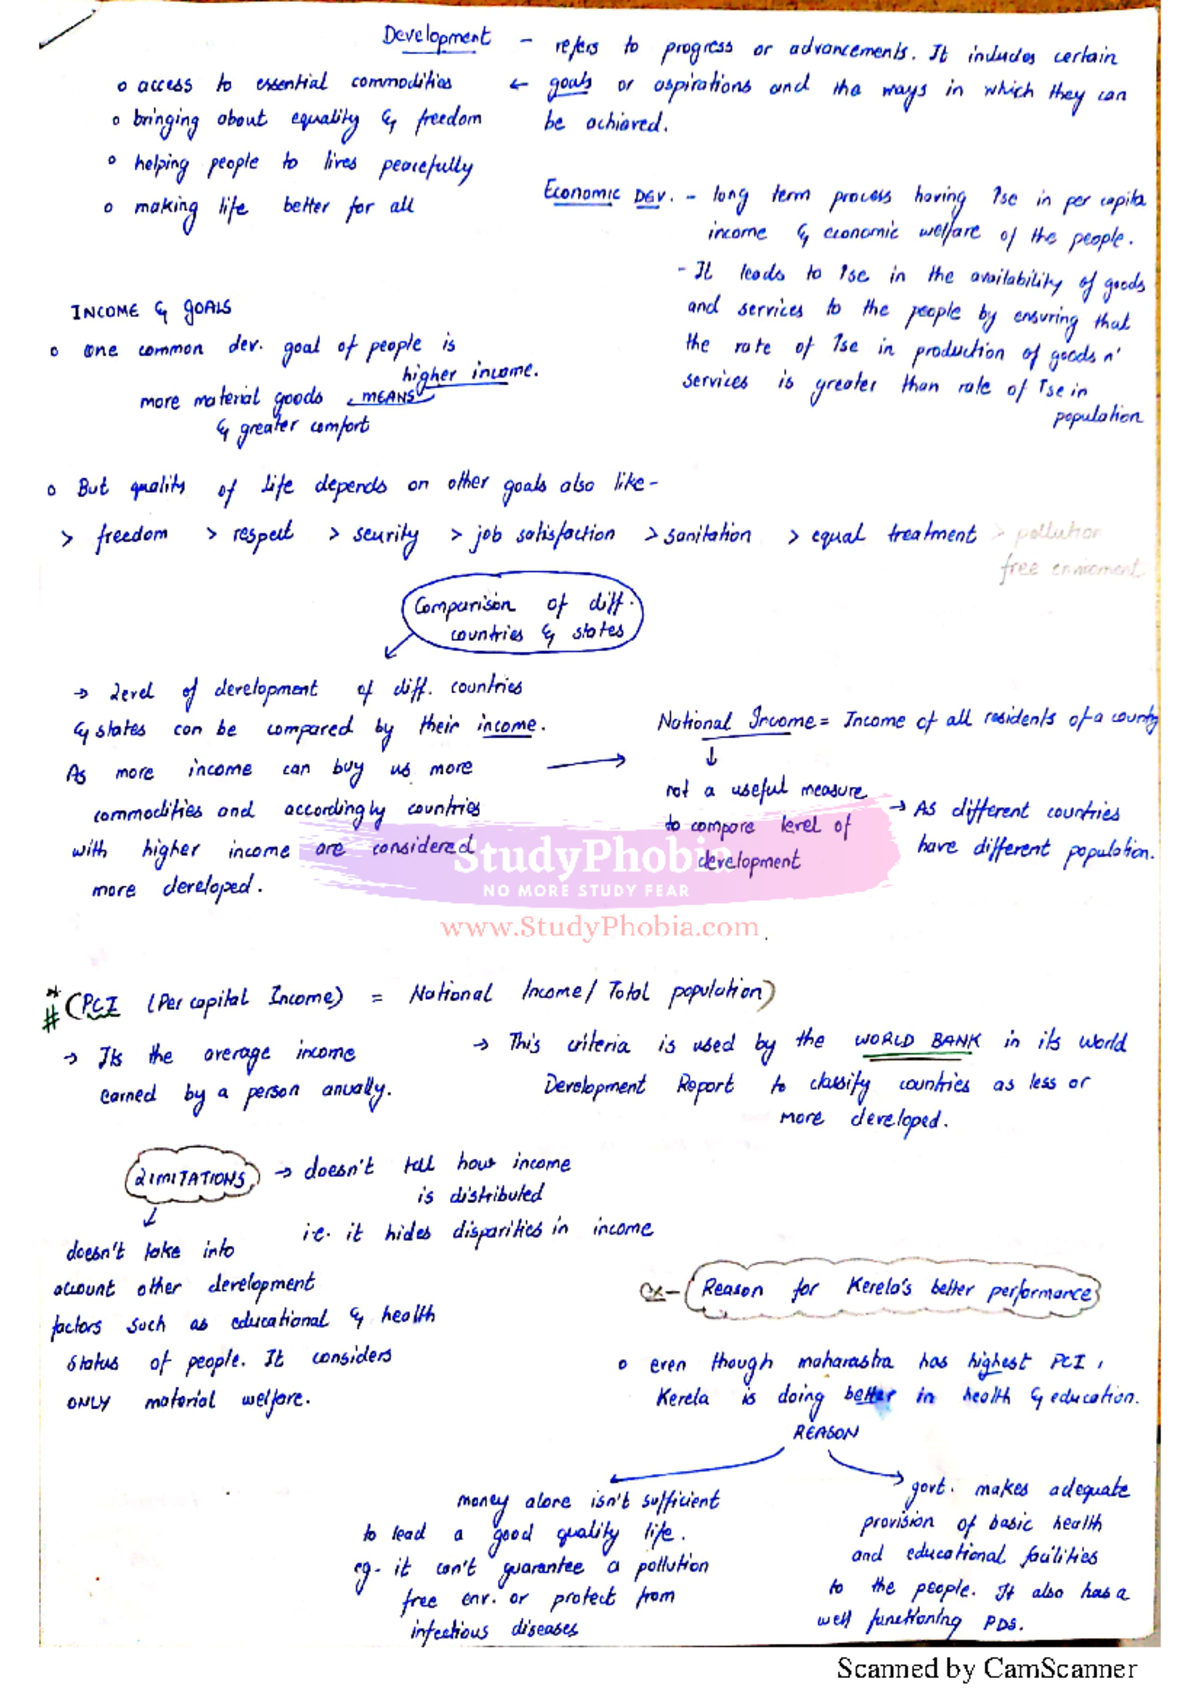 Development - refers to progress or advancements. It includes certain
← goals or aspirations and the ways in which they can
be achieved.
o access to essential commodities
o bringing about equality & freedom
o helping people to lives peacefully
o making life better for all
Economic DEV. - long term process having ↑se in per capita
income & economic welfare of the people.
- It leads to ↑se in the availability of goods
and services to the people by ensuring that
the rate of ↑se in production of goods n'
services is greater than rate of ↑se in
population
INCOME & GOALS
o One common dev. goal of people is
higher income.
more material goods ← MEANS
& greater comfort
o But quality of life depends on other goals also like -
> freedom > respect > security > job satisfaction > sanitation > equal treatment > pollution
free enviroment
Comparison of diff.
countries & states
→ Level of development of diff. countries
& states can be compared by their income.
As more income can buy us more
commodities and accordingly countries
with higher income are considered
more developed.
National Income = Income of all residents of a county
↓
not a useful measure
to compare level of
development
→ As different countries
have different population.
StudyPhobia
NO MORE STUDY FEAR
www.StudyPhobia.com
*
# (PCI (Per capital Income) = National Income / Total population)
→ Its the average income
earned by a person anually.
→ This criteria is used by the WORLD BANK in its World
Development Report to classify countries as less or
more developed.
LIMITATIONS → doesn't tell how income
is distributed
i.e. it hides disparities in income
doesn't take into
account other development
factors such as educational & health
status of people. It considers
ONLY material welfare.
ex- Reason for Kerela's better performance
o even though maharastra has highest PCI,
Kerela is doing better in health & education.
REASON
money alone isn't sufficient
to lead a good quality life.
eg- it can't guarantee a pollution
free env. or protect from
infectious diseases
govt. makes adequate
provision of basic health
and educational facilities
to the people. It also has a
well functioning PDS.
Scanned by CamScanner